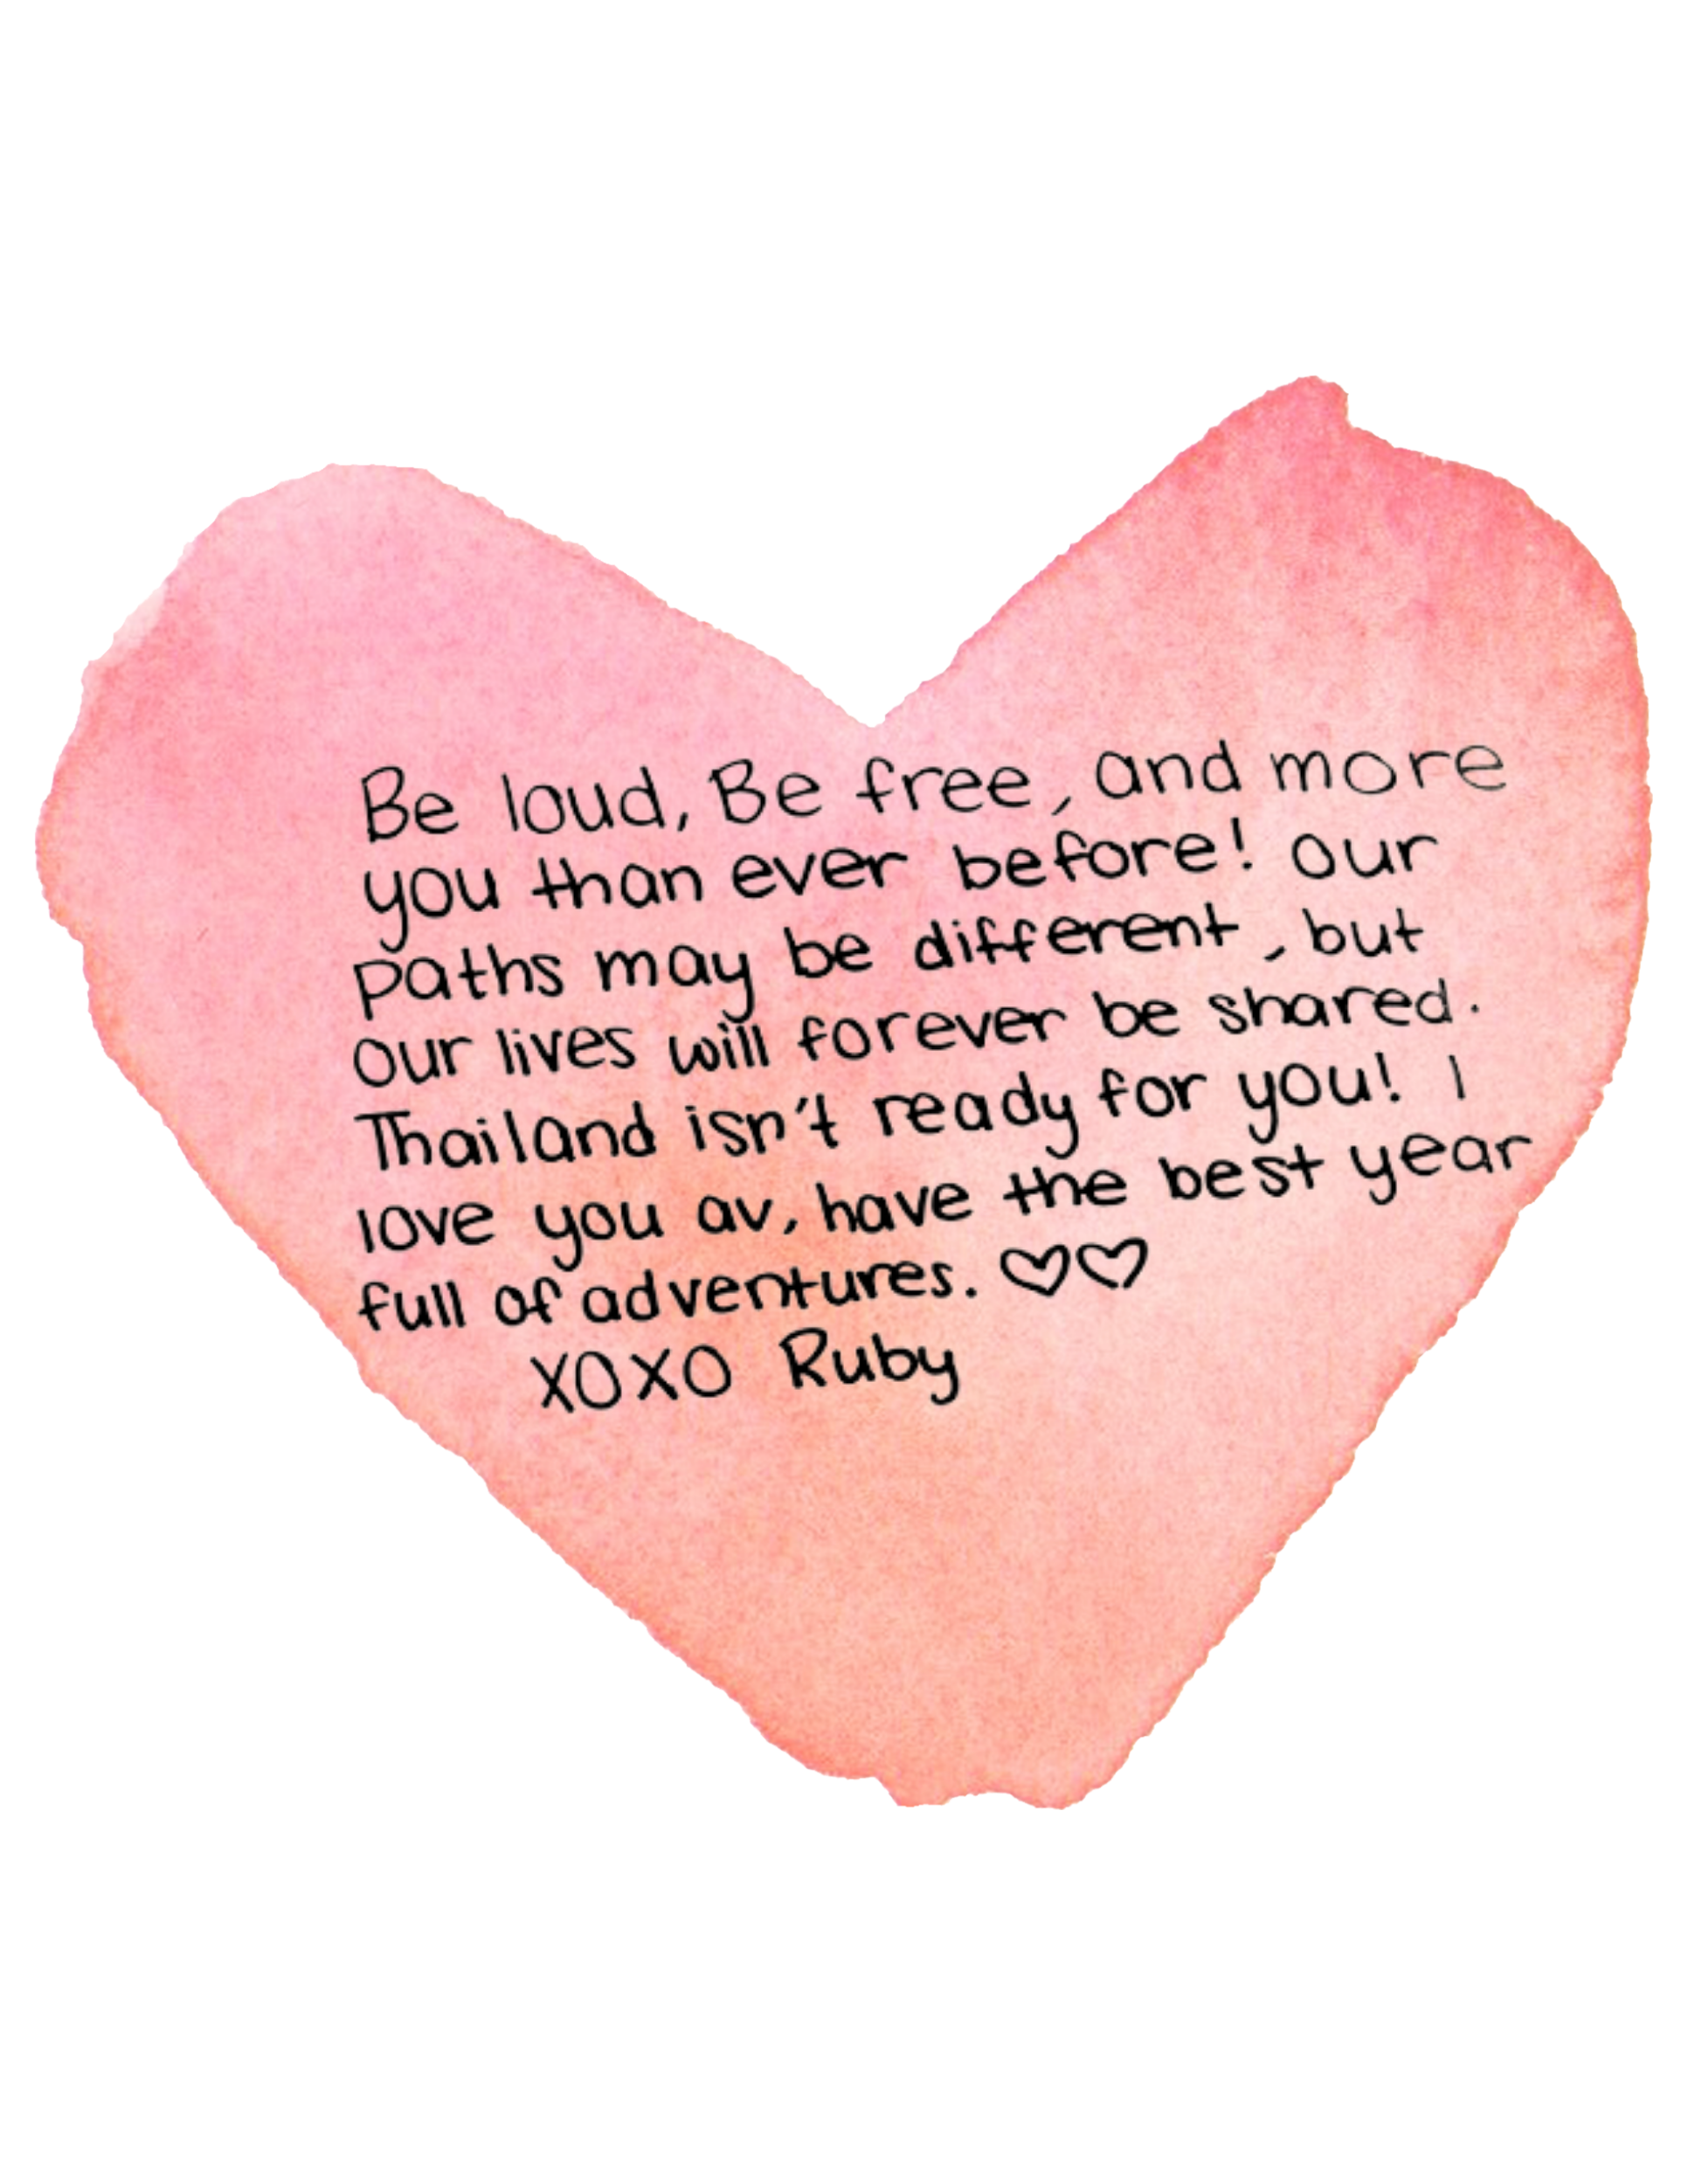 Be loud, Be free, and more
you than ever before! our
paths may be different, but
our lives will forever be shared.
Thailand isn't ready for you! I
love you av, have the best year
full of adventures. ♡♡
XOXO Ruby